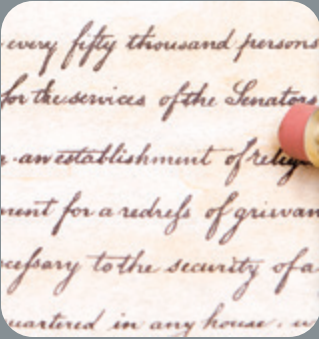 every fifty thousand persons
for the services of the Senators
an establishment of relig
ment for a redress of grievan
cessary to the security of a
uartered in any house, w